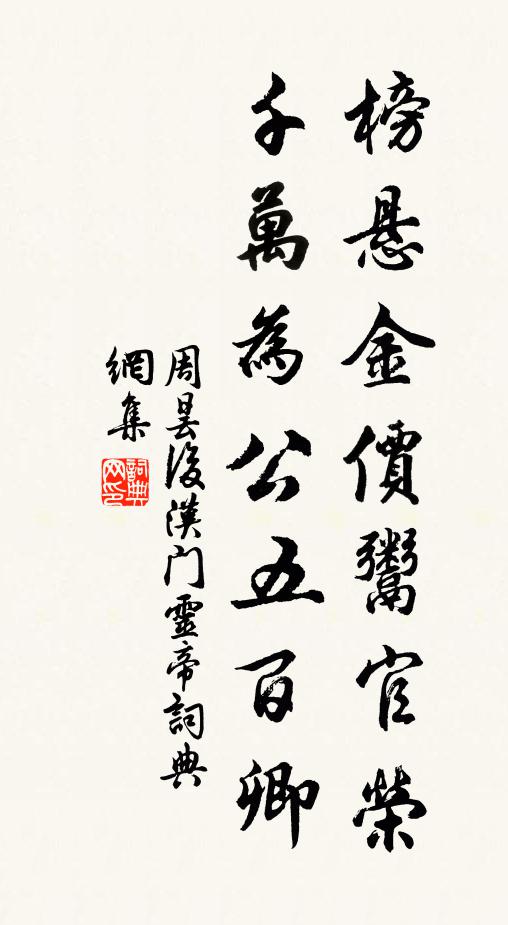 榜悬金價鬻官榮
千萬為公五百卿
周曇後漢門靈帝詞典
網集
詞典
网印